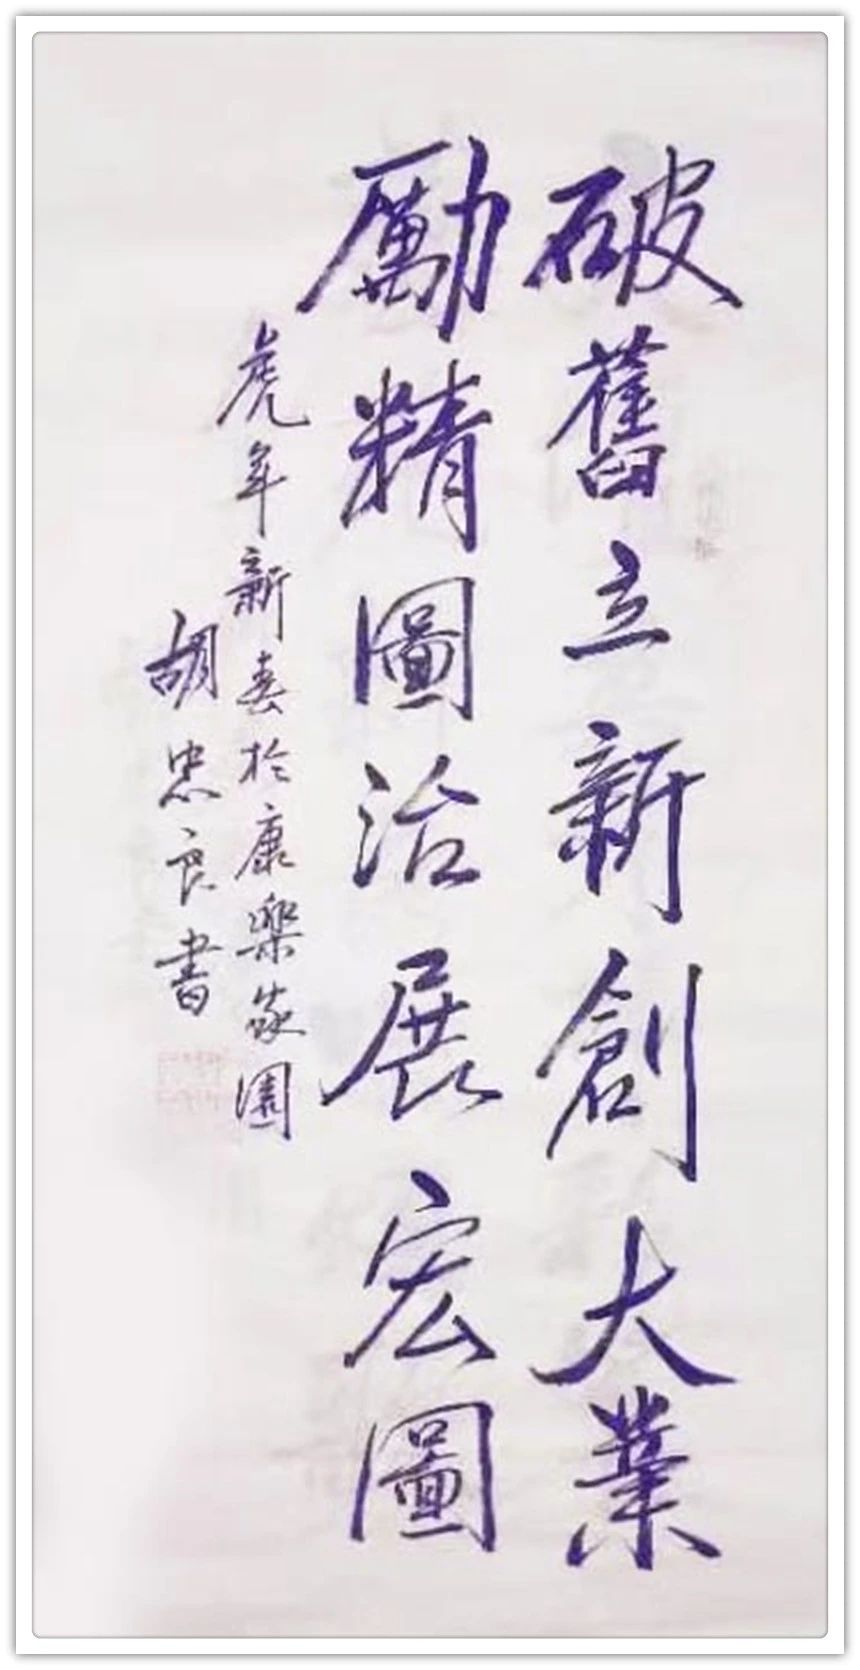 破舊立新創大業
勵精圖治展宏圖
虎年新春於康樂家園
胡忠良書